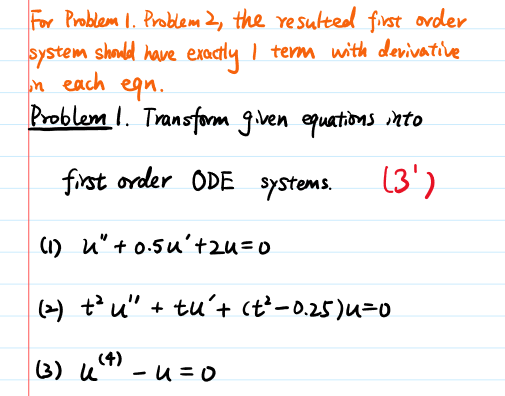 For Problem 1. Problem 2, the resulted first order
system should have exactly 1 term with derivative
in each eqn.
Problem 1. Transform given equations into
first order ODE systems. (3')
(1) u'' + 0.5u' + 2u = 0
(2) t² u'' + tu' + (t² - 0.25)u = 0
(3) u⁽⁴⁾ - u = 0